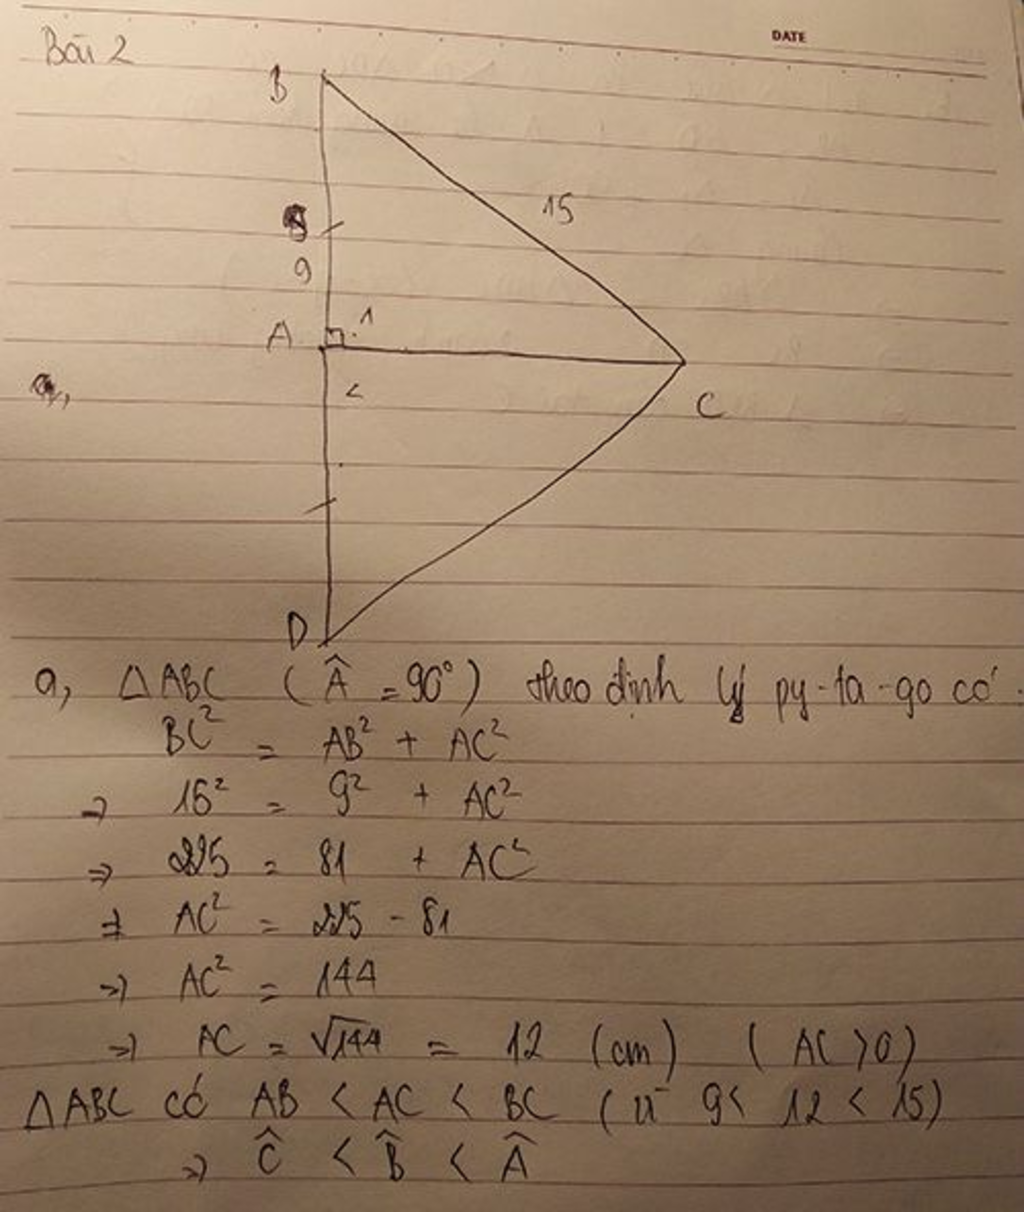 DATE
Bài 2
B
15
9
A
1
2
C
D
a, △ABC (Â = 90°) theo định lý py-ta-go có:
BC² = AB² + AC²
⇒ 15² = 9² + AC²
⇒ 225 = 81 + AC²
⇒ AC² = 225 - 81
⇒ AC² = 144
⇒ AC = √144 = 12 (cm) (AC > 0)
△ABC có AB < AC < BC (vì 9 < 12 < 15)
⇒ Ĉ < B̂ < Â